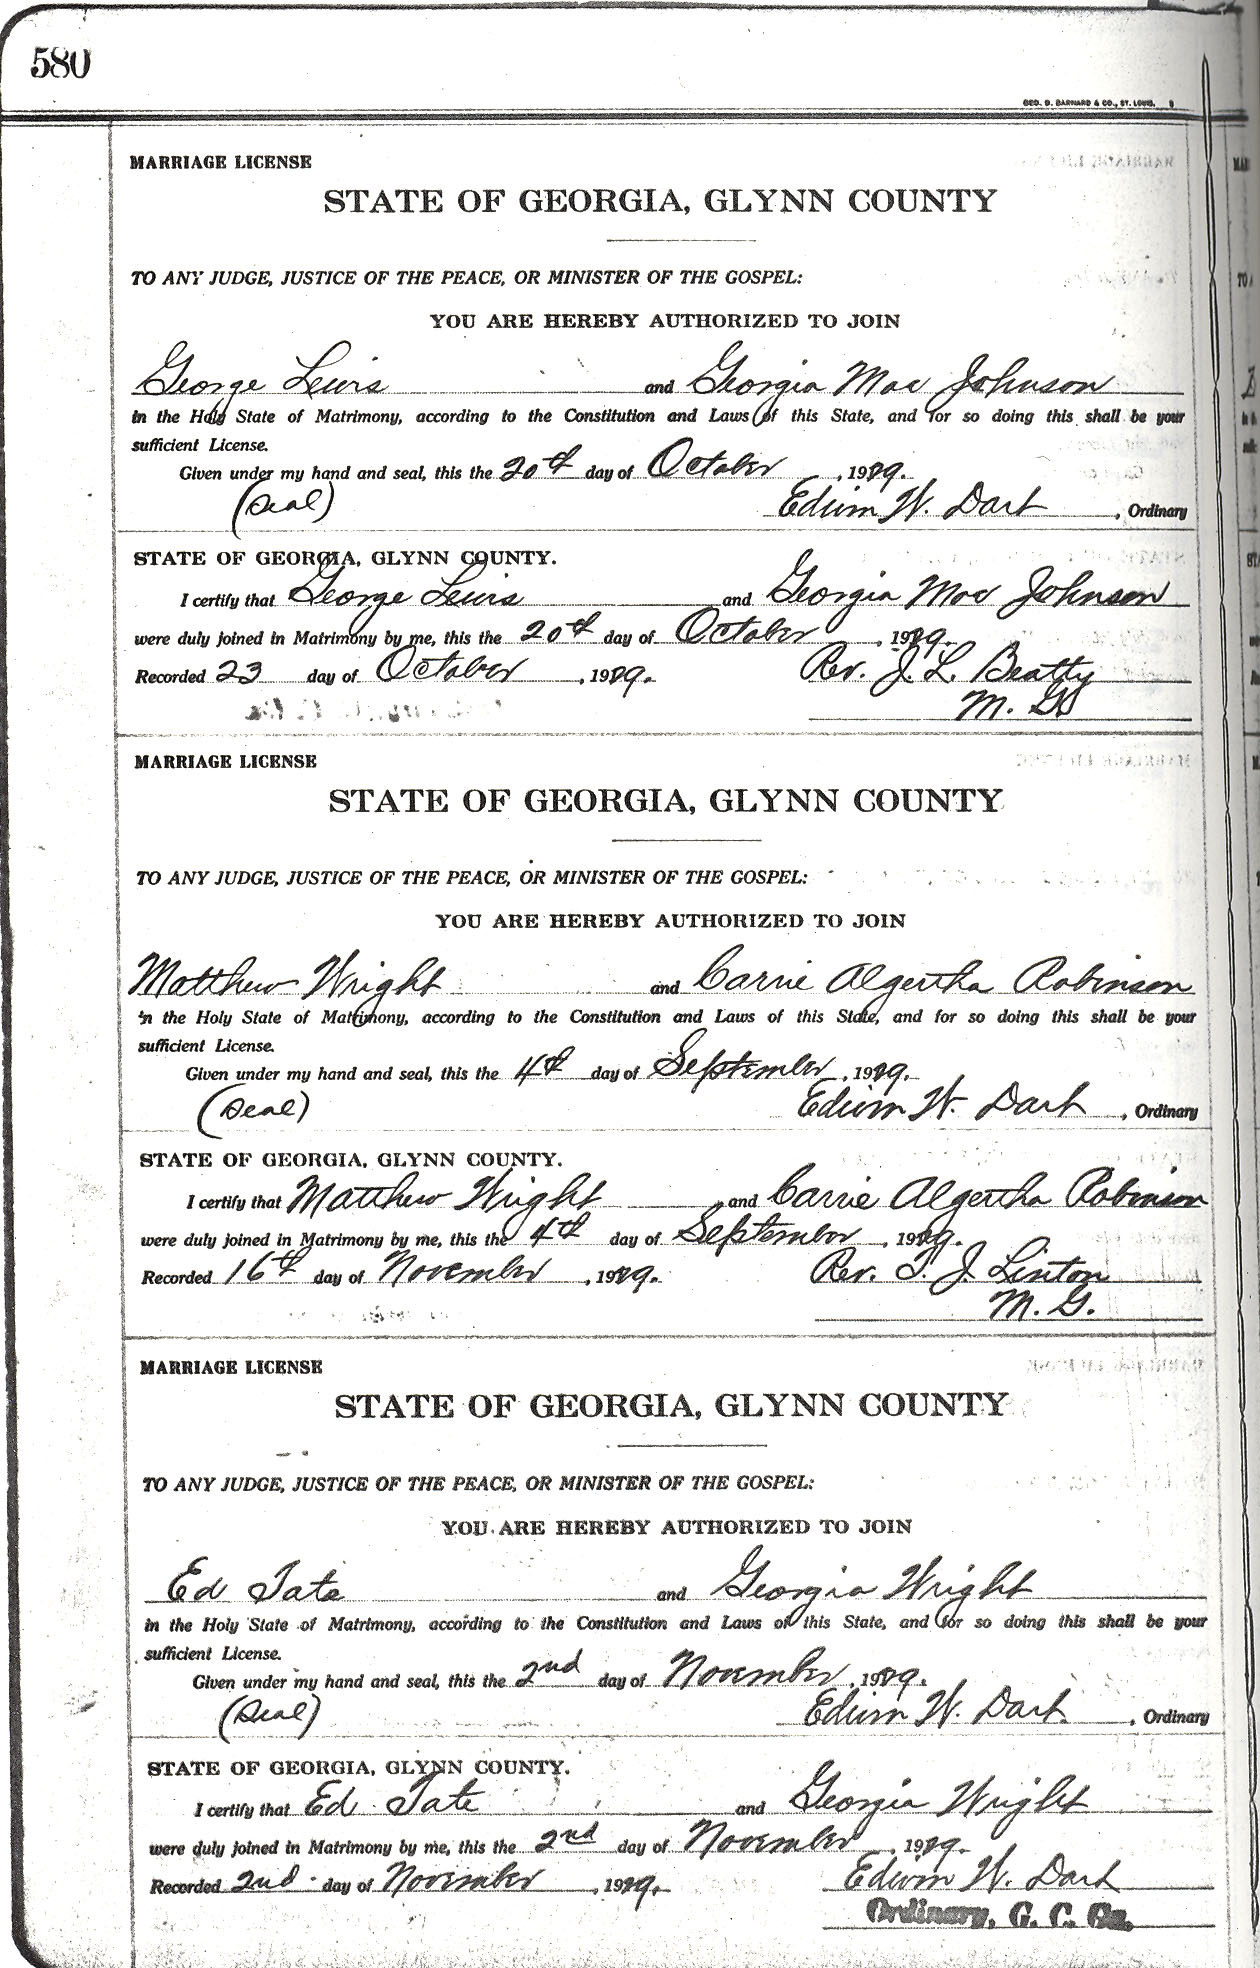 580
GEO. D. BARNARD & CO., ST. LOUIS.
MARRIAGE LICENSE
STATE OF GEORGIA, GLYNN COUNTY
TO ANY JUDGE, JUSTICE OF THE PEACE, OR MINISTER OF THE GOSPEL:
YOU ARE HEREBY AUTHORIZED TO JOIN
George Lewis and Georgia Mae Johnson
in the Holy State of Matrimony, according to the Constitution and Laws of this State, and for so doing this shall be your
sufficient License.
Given under my hand and seal, this the 20th day of October, 1929.
(Seal) Edwin W. Dart, Ordinary
STATE OF GEORGIA, GLYNN COUNTY.
I certify that George Lewis and Georgia Mae Johnson
were duly joined in Matrimony by me, this the 20th day of October, 1929.
Recorded 23 day of October, 1929. Rev. J. L. Beatty
M. G
MARRIAGE LICENSE
STATE OF GEORGIA, GLYNN COUNTY
TO ANY JUDGE, JUSTICE OF THE PEACE, OR MINISTER OF THE GOSPEL:
YOU ARE HEREBY AUTHORIZED TO JOIN
Matthew Wright and Carrie Algertha Robinson
in the Holy State of Matrimony, according to the Constitution and Laws of this State, and for so doing this shall be your
sufficient License.
Given under my hand and seal, this the 4th day of September, 1929.
(Seal) Edwin W. Dart, Ordinary
STATE OF GEORGIA, GLYNN COUNTY.
I certify that Matthew Wright and Carrie Algertha Robinson
were duly joined in Matrimony by me, this the 4th day of September, 1929.
Recorded 16th day of November, 1929. Rev. T. J. Linton
M. G.
MARRIAGE LICENSE
STATE OF GEORGIA, GLYNN COUNTY
TO ANY JUDGE, JUSTICE OF THE PEACE, OR MINISTER OF THE GOSPEL:
YOU ARE HEREBY AUTHORIZED TO JOIN
Ed Tate and Georgia Wright
in the Holy State of Matrimony, according to the Constitution and Laws of this State, and for so doing this shall be your
sufficient License.
Given under my hand and seal, this the 2nd day of November, 1929.
(Seal) Edwin W. Dart, Ordinary
STATE OF GEORGIA, GLYNN COUNTY.
I certify that Ed Tate and Georgia Wright
were duly joined in Matrimony by me, this the 2nd day of November, 1929.
Recorded 2nd day of November, 1929. Edwin W. Dart
Ordinary, G. C. Ga.